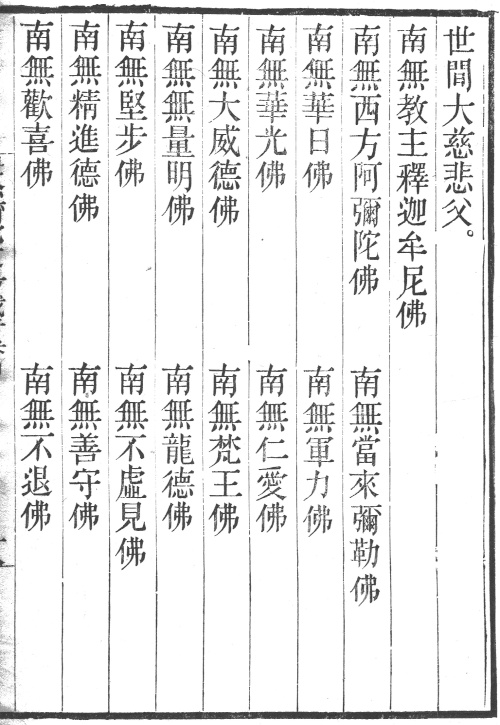 世間大慈悲父。
南無教主釋迦牟尼佛
南無西方阿彌陀佛　南無當來彌勒佛
南無華日佛　南無軍力佛
南無華光佛　南無仁愛佛
南無大威德佛　南無梵王佛
南無無量明佛　南無龍德佛
南無堅步佛　南無不虛見佛
南無精進德佛　南無善守佛
南無歡喜佛　南無不退佛